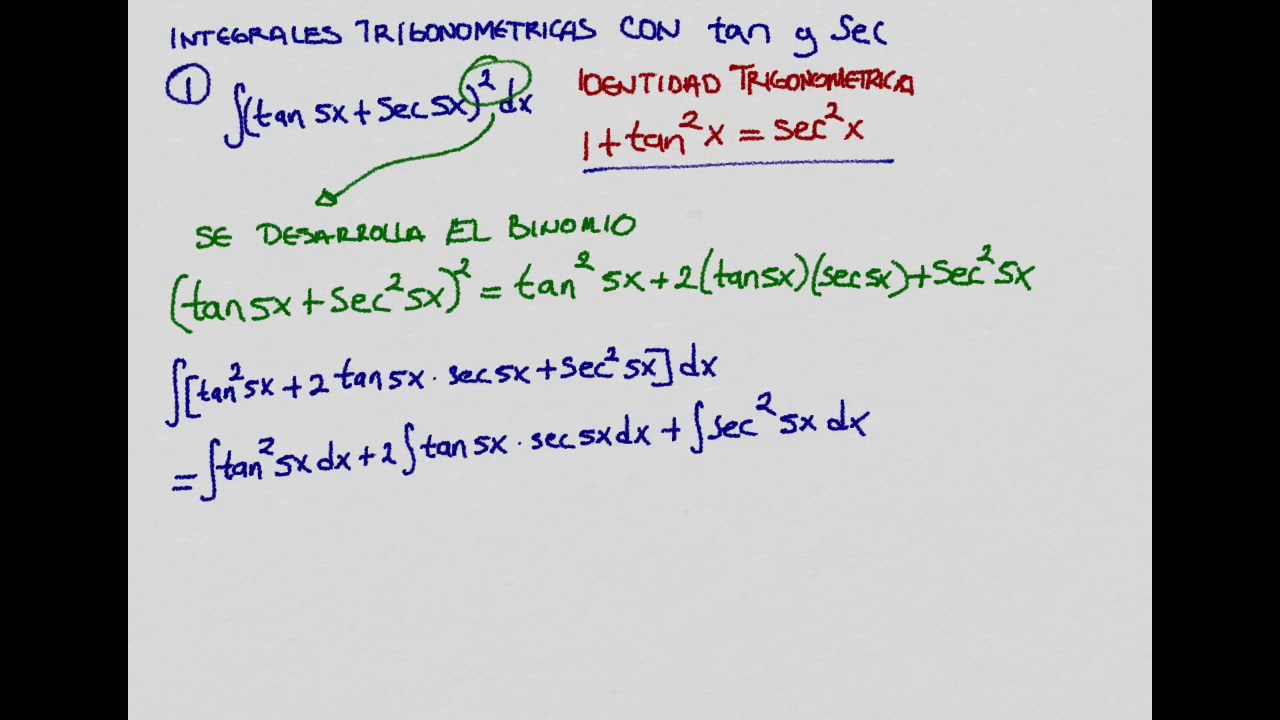 INTEGRALES TRIGONOMETRICAS CON tan y Sec
① ∫(tan 5x + Sec 5x)² dx
IDENTIDAD TRIGONOMETRICA
1 + tan² x = sec² x
SE DESARROLLA EL BINOMIO
(tan 5x + Sec² 5x)² = tan² 5x + 2(tan 5x)(sec 5x) + Sec² 5x
∫[tan² 5x + 2 tan 5x · sec 5x + Sec² 5x] dx
= ∫tan² 5x dx + 2 ∫tan 5x · sec 5x dx + ∫sec² 5x dx